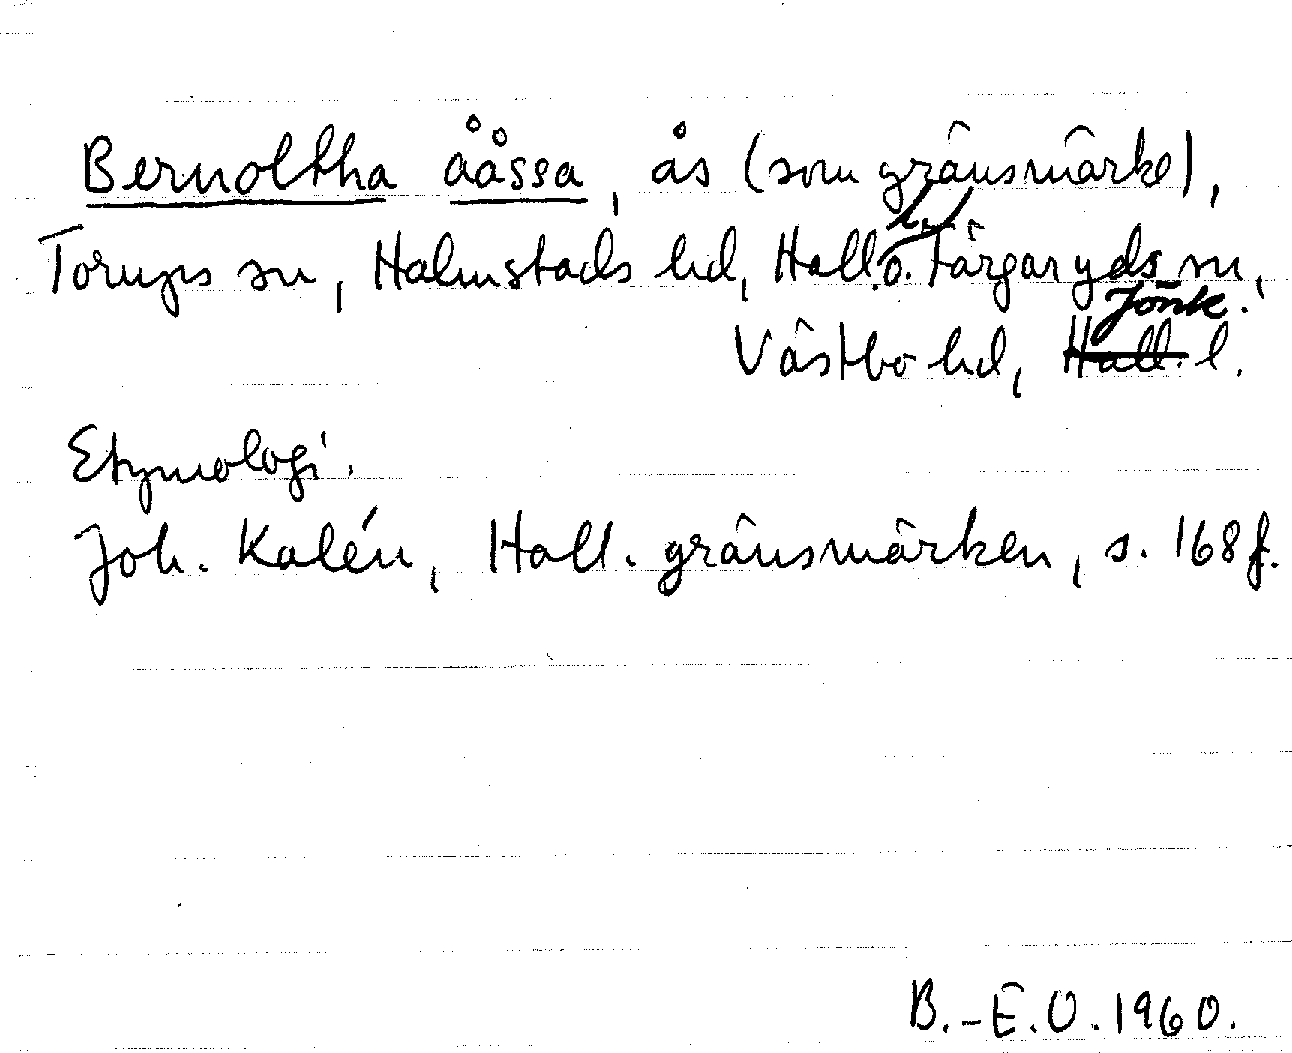 Bernoltha ååssa, ås (som gränsmärke),
Torups sn, Halmstads hd, Hall. l. o. Färgaryds sn,
Västbo hd, Jönk. l.
Etymologi.
Joh. Kalén, Hall. gränsmärken, s. 168 f.
B.-E.O. 1960.